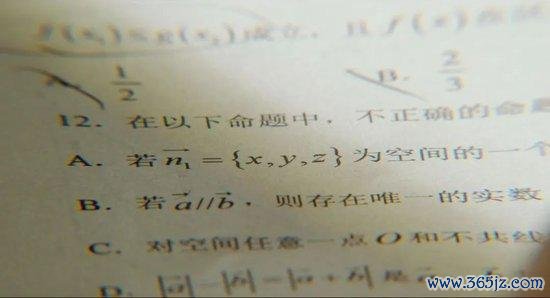 f(x₁)≤g(x₂)成立，且f(x)在
1/2 B. 2/3
12. 在以下命题中，不正确的命题
A. 若n₁⃗={x,y,z}为空间的一个
B. 若a⃗//b⃗，则存在唯一的实数
C. 对空间任意一点O和不共线
D. |a⃗|-|b⃗|=|a⃗+b⃗|是
www.365jz.com